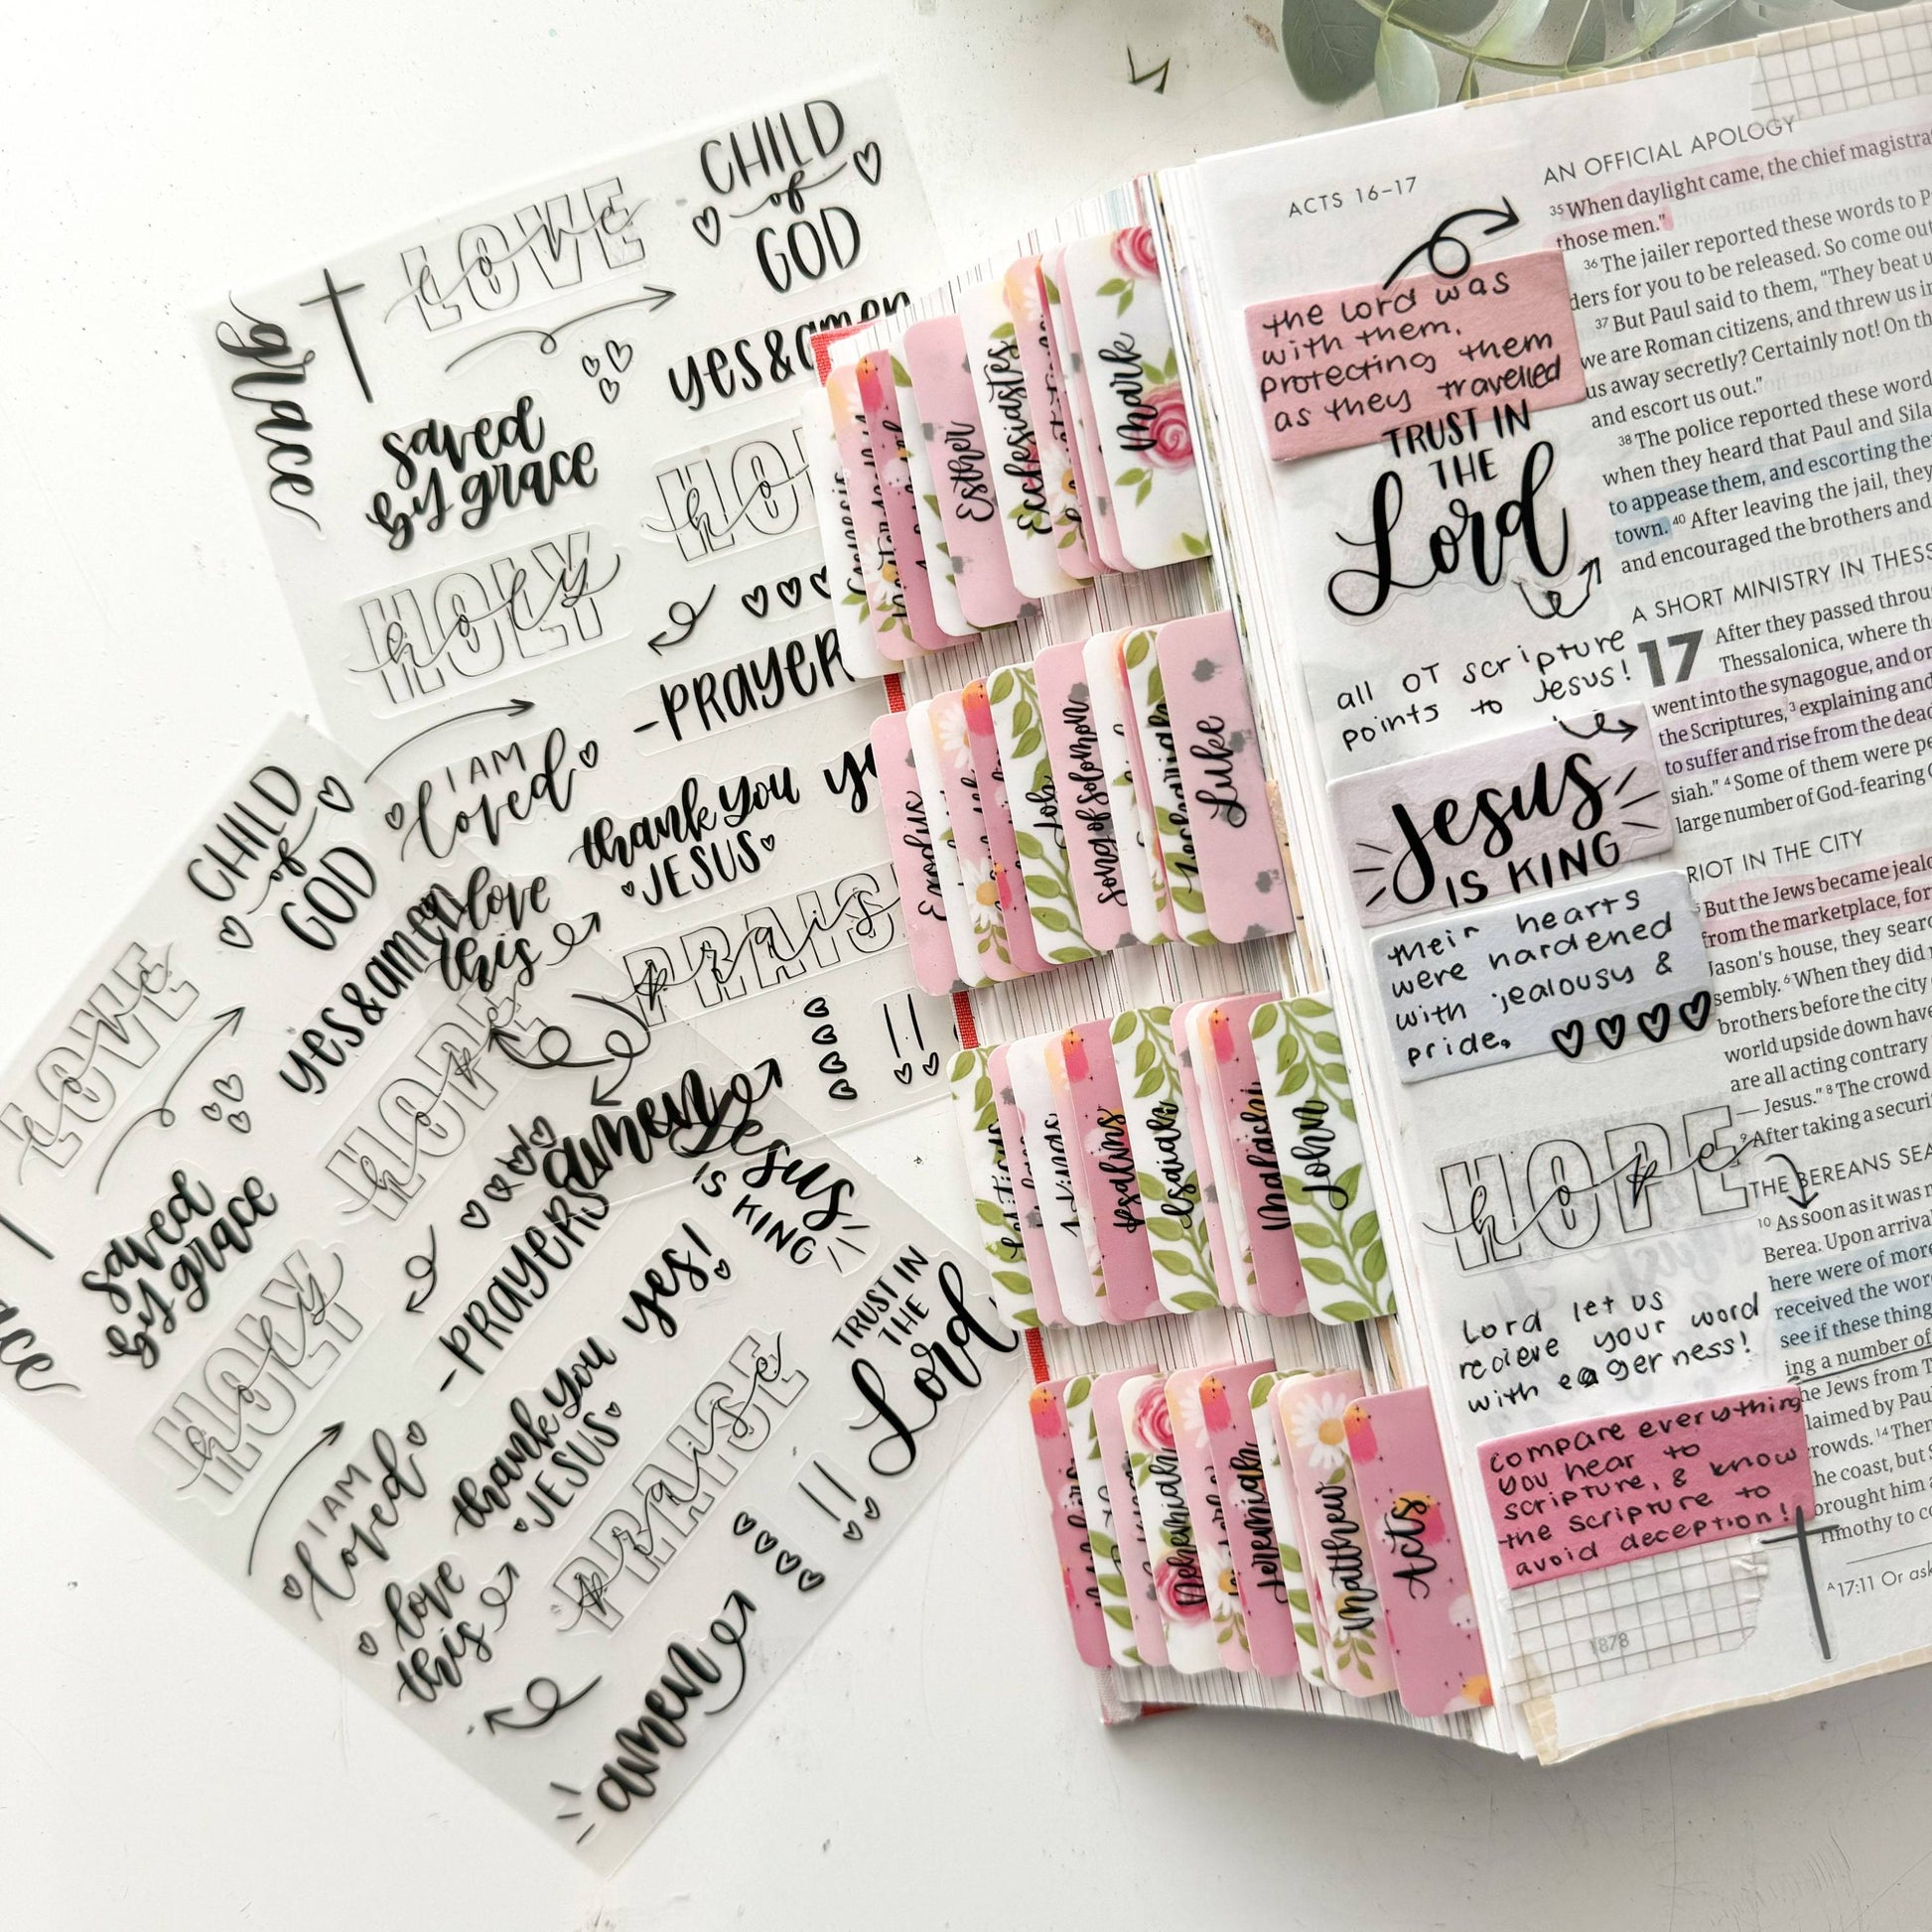 CHILD
of
GOD
LOVE
love
grace
yes&amen
saved
by grace
HOLY
holy
-PRAYER
I AM
loved
thank you
JESUS
love
this
PRAISE
praise
!!
amen
CHILD
of
GOD
LOVE
love
yes&amen
HOPE
hope
saved
by grace
HOLY
holy
-PRAYERS
Jesus
IS KING
yes!
TRUST IN
THE
Lord
thank you
JESUS
I AM
loved
PRAISE
praise
!!
love
this
amen
Esther
Ecclesiastes
Mark
Exodus
Job
Song of Solomon
Zechariah
Luke
1 Kings
Psalms
Isaiah
Malachi
John
Nehemiah
Jeremiah
Matthew
Acts
ACTS 16–17
the Lord was
with them.
protecting them
as they travelled
TRUST IN
THE
Lord
all OT scripture
points to Jesus!
Jesus
IS KING
their hearts
were hardened
with jealousy &
pride.
HOPE
hope
Lord let us
recieve your word
with eagerness!
compare everything
you hear to
scripture, & know
the scripture to
avoid deception!
1878
AN OFFICIAL APOLOGY
35 When daylight came, the chief
those men."
36 The jailer reported these words to
ders for you to be released. So come
37 But Paul said to them, "They beat
we are Roman citizens, and threw us
us away secretly? Certainly not! On
and escort us out."
38 The police reported these
when they heard that Paul and
to appease them, and escorting
town. 40 After leaving the jail, they
and encouraged the brothers and
A SHORT MINISTRY IN
17 After they passed
Thessalonica, where
went into the synagogue, and
the Scriptures, 3 explaining and
to suffer and rise from the
siah." 4 Some of them were
large number of God-fearing
RIOT IN THE CITY
But the Jews became
from the marketplace,
Jason's house, they
sembly. 6 When they did
brothers before the city
world upside down have
are all acting contrary
— Jesus." 8 The crowd
9 After taking a
THE BEREANS
10 As soon as it was
Berea. Upon
here were of more
received the
see if these
ing a number of
the Jews from
claimed by
crowds. 14
the coast, but
brought him
Timothy to
A 17:11 Or